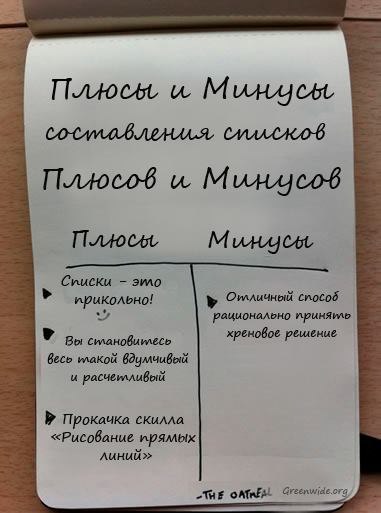 Плюсы и Минусы
составления списков
Плюсов и Минусов
Плюсы
Минусы
Списки - это
прикольно!
Вы становитесь
весь такой вдумчивый
и расчетливый
Прокачка скилла
«Рисование прямых
линий»
Отличный способ
рационально принять
хреновое решение
-THE OATMEAL
Greenwide.org